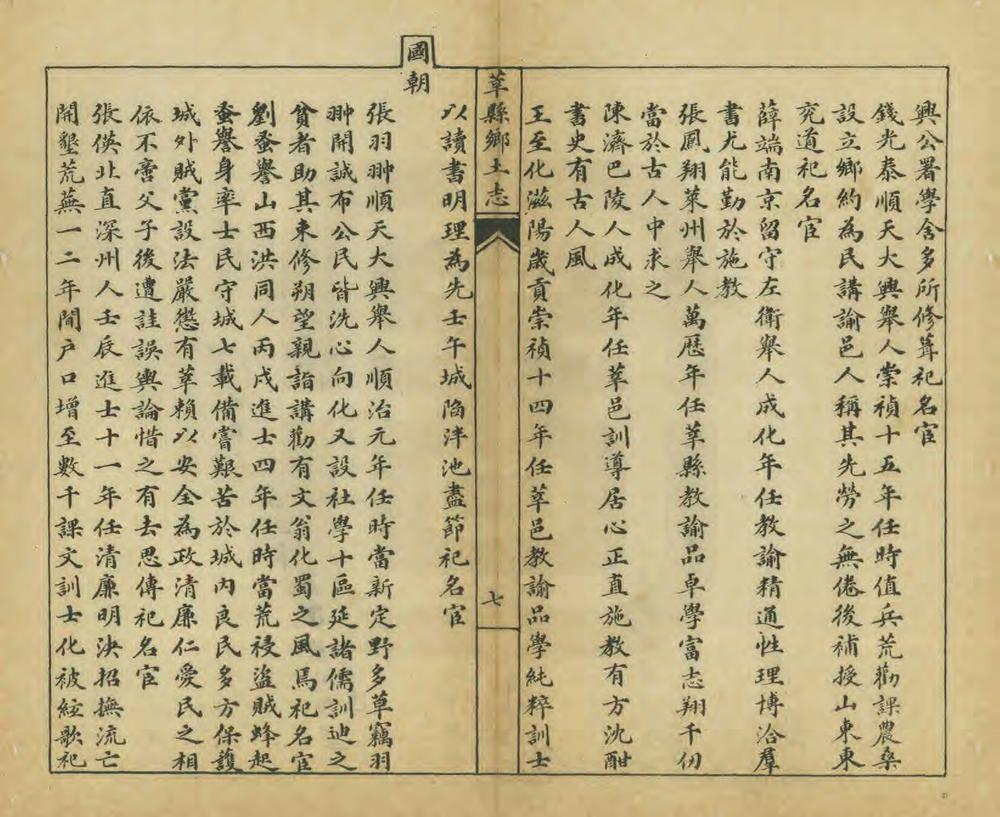 興公署學舍多所修葺祀名宦
錢光泰順天大興舉人崇禎十五年任時值兵荒勸課農桑
設立鄉約為民講諭邑人稱其先勞之無倦後補授山東東
兖道祀名宦
薛端南京留守左衛舉人成化年任教諭精通性理博洽羣
書尤能勤於施教
張鳳翔萊州舉人萬歷年任莘縣教諭品卓學富志翔千仞
當於古人中求之
陳濟巴陵人成化年任莘邑訓導居心正直施教有方沈酣
書史有古人風
王至化滋陽歲貢崇禎十四年任莘邑教諭品學純粹訓士
莘縣鄉土志
七
以讀書明理為先壬午城陷泮池盡節祀名宦
國朝
張羽翀順天大興舉人順治元年任時當新定野多草竊羽
翀開誠布公民皆洗心向化又設社學十區延諸儒訓迪之
貧者助其束修朔望親詣講勸有文翁化蜀之風焉祀名宦
劉蚤譽山西洪同人丙戌進士四年任時當荒祲盜賊蜂起
蚤譽身率士民守城七載備嘗艱苦於城內良民多方保護
城外賊黨設法嚴懲有莘賴以安全為政清廉仁愛民之相
依不啻父子後遭詿誤輿論惜之有去思傳祀名宦
張僙北直深州人壬辰進士十一年任清廉明決招撫流亡
開墾荒蕪一二年間户口增至數千課文訓士化被絃歌祀